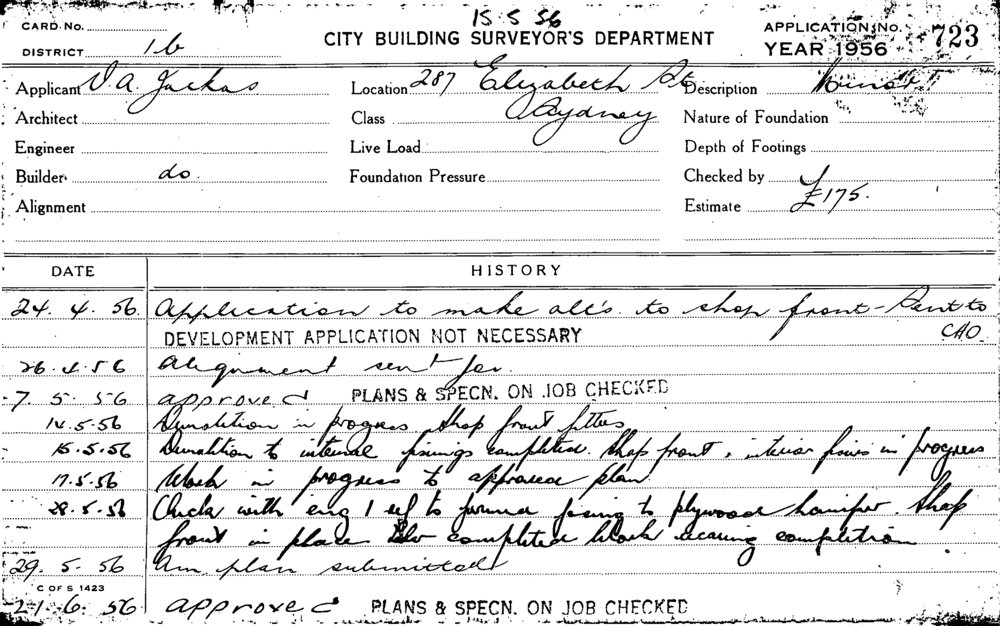 15.5.56
CARD No.
CITY BUILDING SURVEYOR'S DEPARTMENT
APPLICATION No. 723
DISTRICT 1b
YEAR 1956
Applicant
Location 287 Elizabeth St
Description
Architect
Class Sydney
Nature of Foundation
Engineer
Live Load
Depth of Footings
Builder do.
Foundation Pressure
Checked by
Alignment
Estimate £175.
DATE HISTORY
24. 4. 56. Application to make alt's. to shop front - Sent to
DEVELOPMENT APPLICATION NOT NECESSARY CAO.
26.4.56 Alignment sent for.
7. 5. 56 approved PLANS & SPECN. ON JOB CHECKED
14.5.56 Demolition in progress Shop front
15.5.56 Demolition to internal fixings completed. Shop front, interior in progress
17.5.56 Work in progress to approved plan
28.5.56 Check with eng to fixing to plywood Shop
front in place completed Work nearing completion
29. 5. 56 Am plan submitted
C OF S 1423
21. 6. 56 approved PLANS & SPECN. ON JOB CHECKED